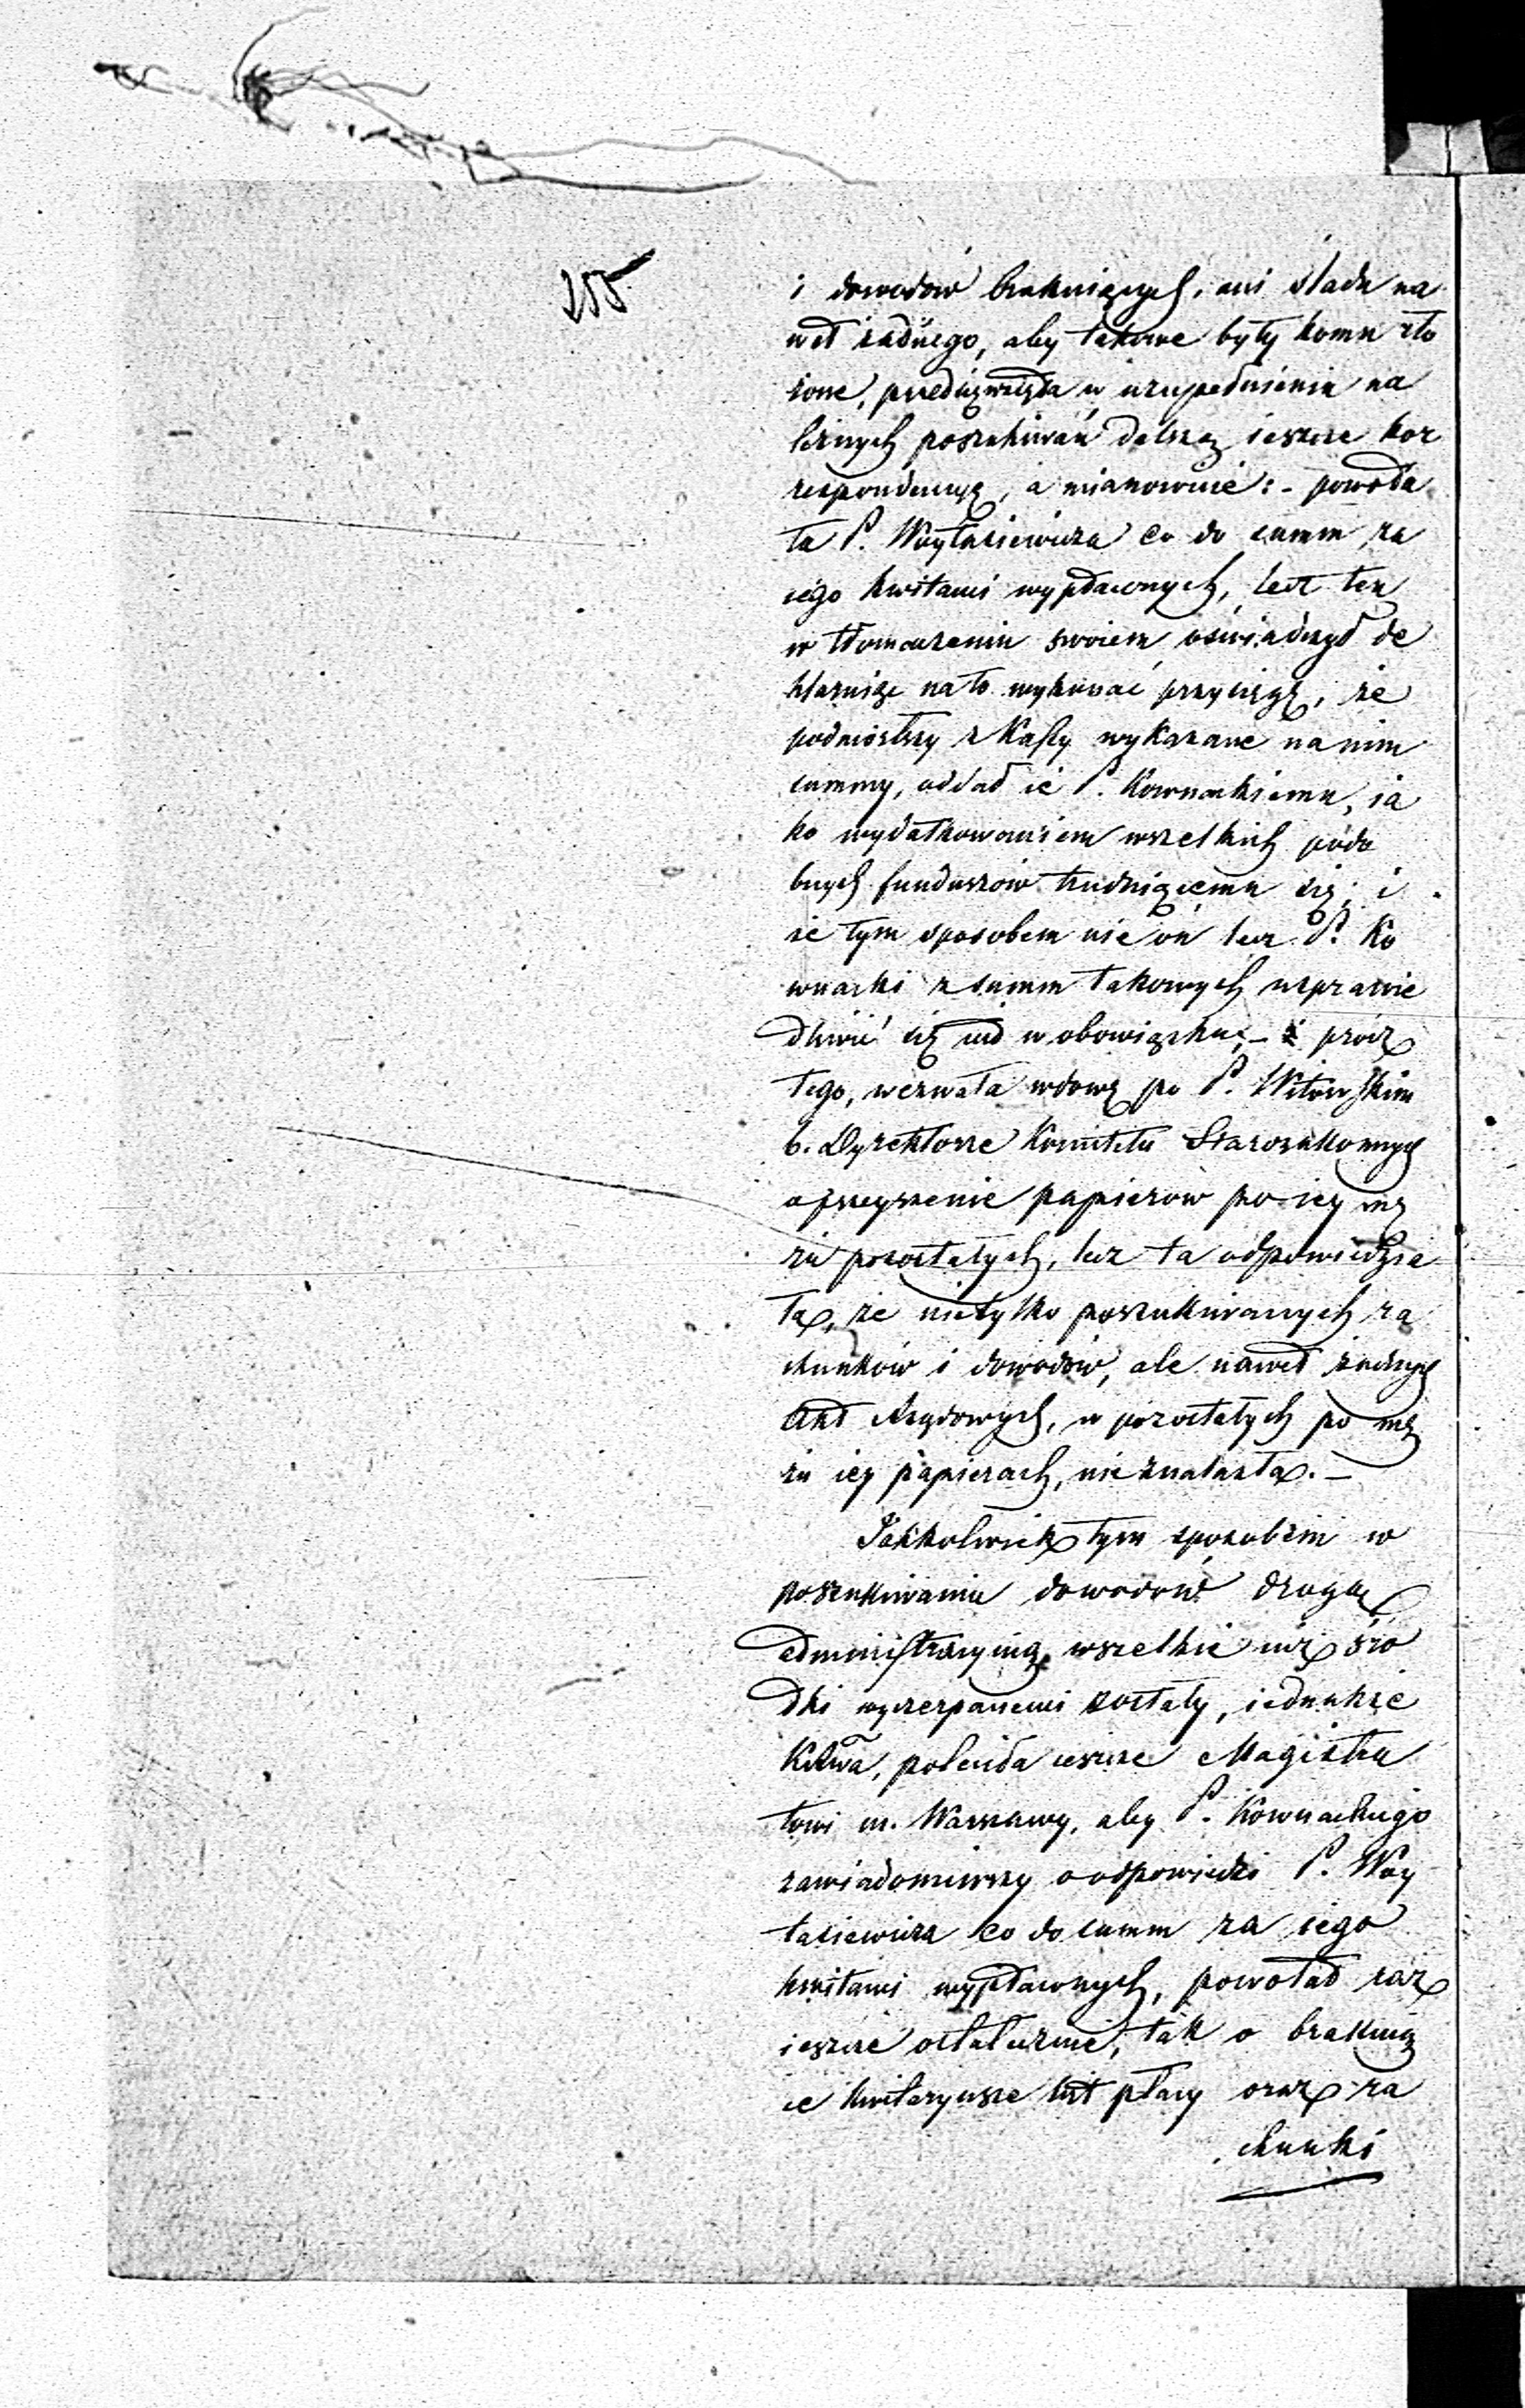 255
i dowodów brakuiących, ani śladu na
wet żadnego, aby takowe były komu zło
żone, przedsięwzięła w uzupełnieniu na
leżnych poszukiwań dalszą ieszcze kor
respondencyę, a mianowicie: - powoła
ła P. Woytasiewicza co do summ za
iego kwitami wypłaconych, lecz ten
w tłomaczeniu swoiem oświadczył de
klaruiąc na to wykonać przysięgę, że
podniósłszy z Kassy wykazane na nim
summy, oddał ie P. Kownackiemu, ia
ko wydatkowaniem wszelkich podo
bnych funduszów trudniącemu się; i
że tym sposobem nie on lecz P. Ko
wnacki z summ takowych usprawie
dliwić się iest w obowiązku; - prócz
tego, wezwała wdowę po P. Witowskim
b. Dyrektorze Komitetu Starozakonnych
o przeyrzenie papierów po iey mę
żu pozostałych, lecz ta odpowiedzia
ła, że nietylko poszukiwanych ra
chunków i dowodów, ale nawet żadnych
Akt Rządowych, w pozostałych po mę
żu iey papierach, nie znalazła. -
Jakkolwiek tym sposobem w
poszukiwaniu dowodów drogą
administracyiną wszelkie iuż śro
dki wyczerpanemi zostały, iednakże
poleciła ieszcze Magistra
towi m. Warszawy, aby P. Kownackiego
zawiadomiwszy o odpowiedzi P. Woy
tasiewicza co do summ za iego
kwitami wypłaconych, powołał raz
ieszcze ostatecznie, tak o brakuią
ce kwitaryusze list płacy oraz ra
chunki